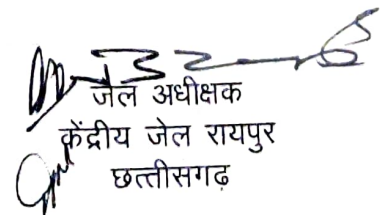 जेल अधीक्षक
केंद्रीय जेल रायपुर
छत्तीसगढ़